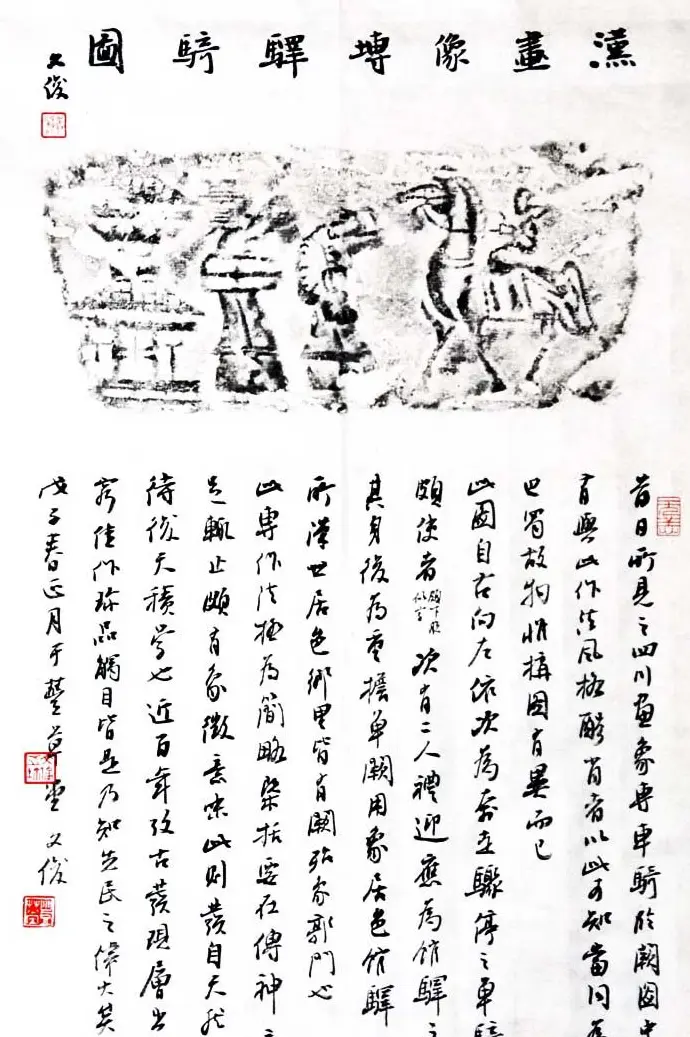 漢畫像塼驛騎圖
文俊
昔日所見之四川畫象專車騎臨闕圖中
有與此作法風極酷肖者以此可知當同為
巴蜀故物惟構圖有異而已
此圖自右向左依次為奔至驟停之單騎
頗使者次有二人禮迎應為館驛之
其身後為重檐單闕用象居邑館驛
所漢世居邑鄉里皆有闕殆象郭門也
此專作法極為簡略檃括要在傳神之
足輒止頗有象徵意味此則發自天然
待後天積學也近百年攷古發現層出
窮佳作珍品觸目皆是乃知先民之偉大其
戊子春正月于豐草堂文俊